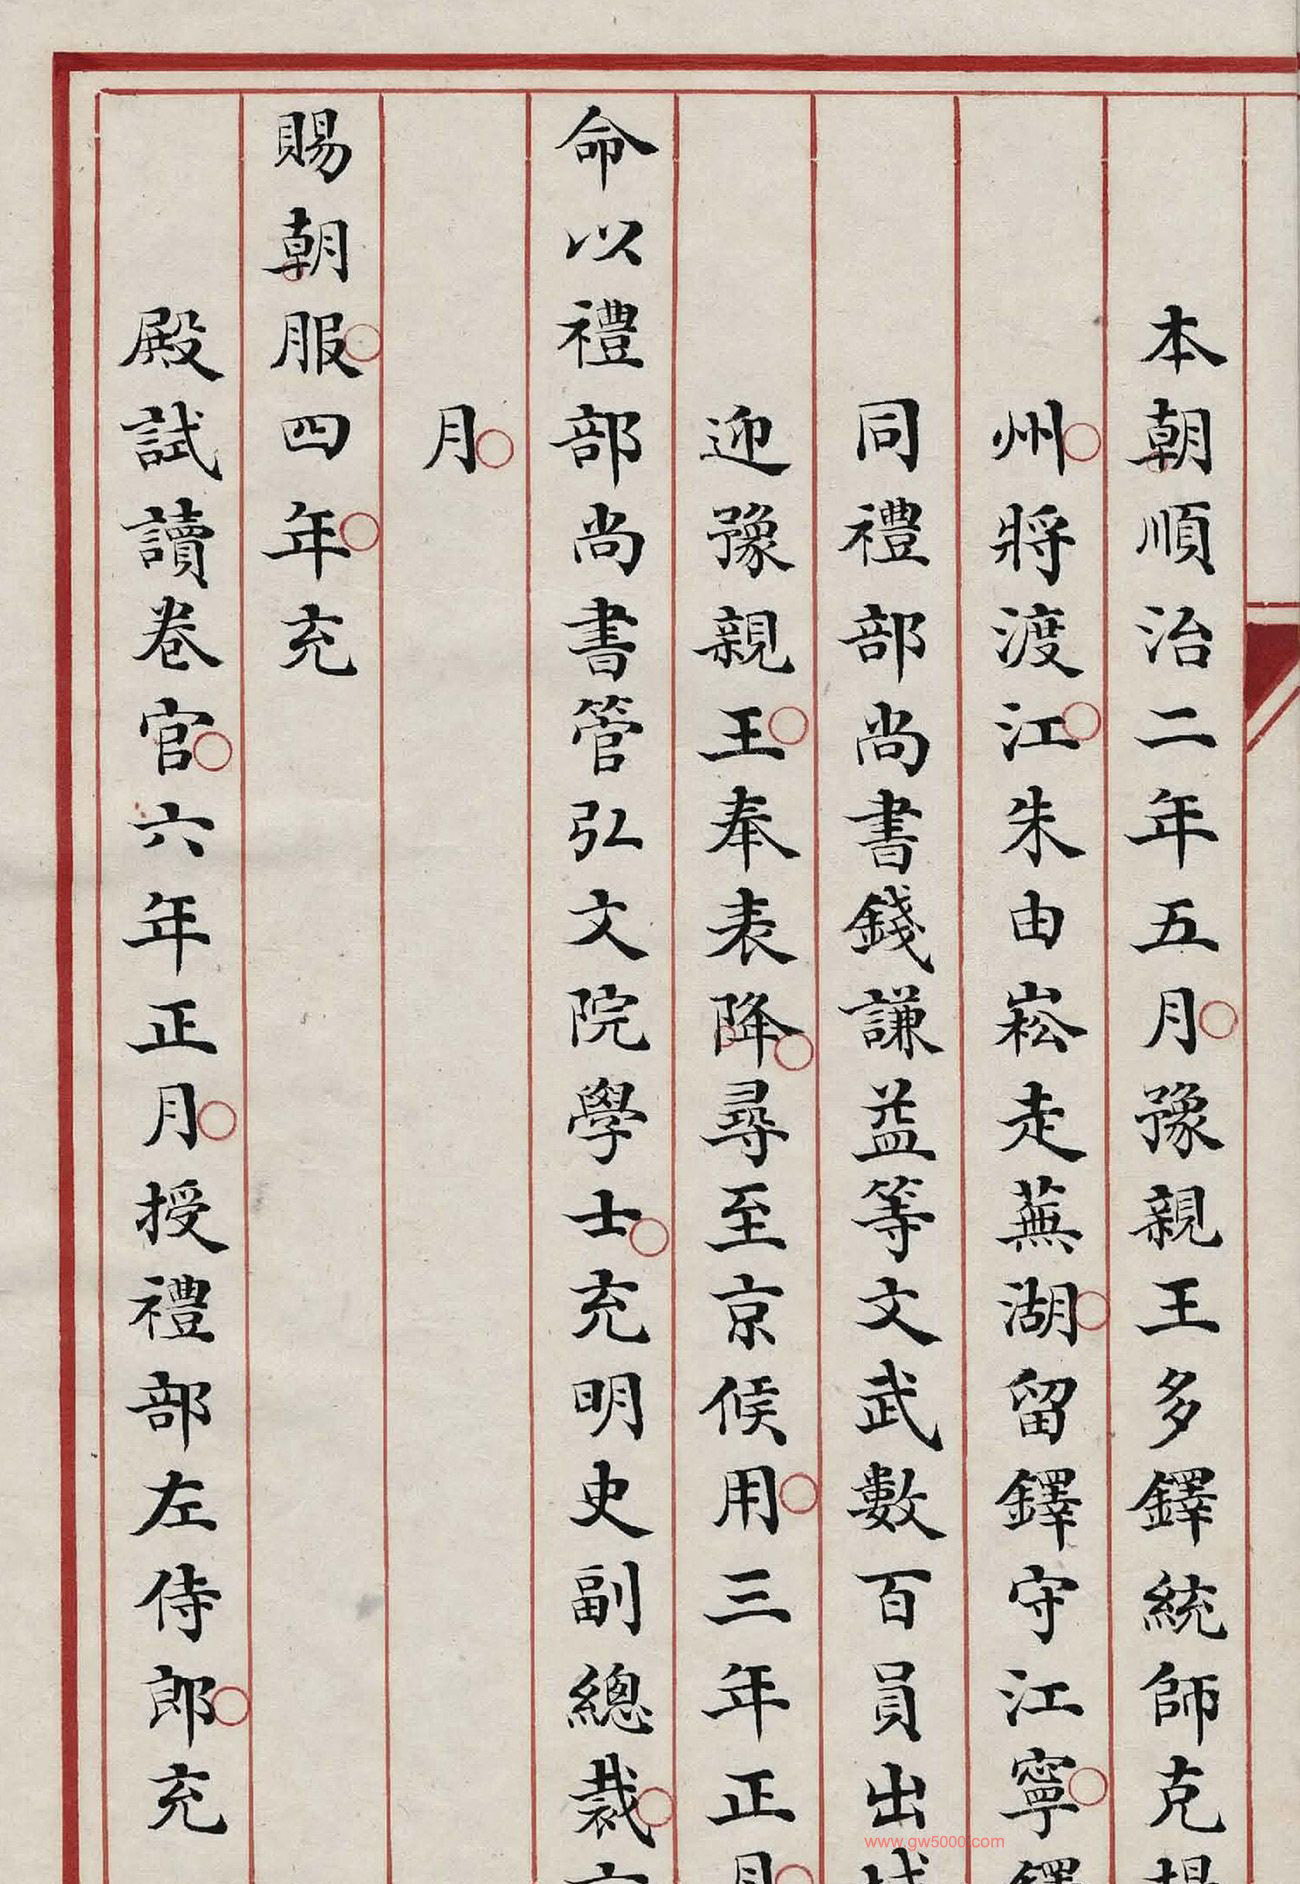 本朝順治二年五月豫親王多鐸統師克揚
州將渡江朱由崧走蕪湖留鐸守江寧鐸
同禮部尚書錢謙益等文武數百員出城
迎豫親王奉表降尋至京候用三年正月
命以禮部尚書管弘文院學士充明史副總裁六
月
賜朝服四年充
殿試讀卷官六年正月授禮部左侍郎充
www.gw5000.com